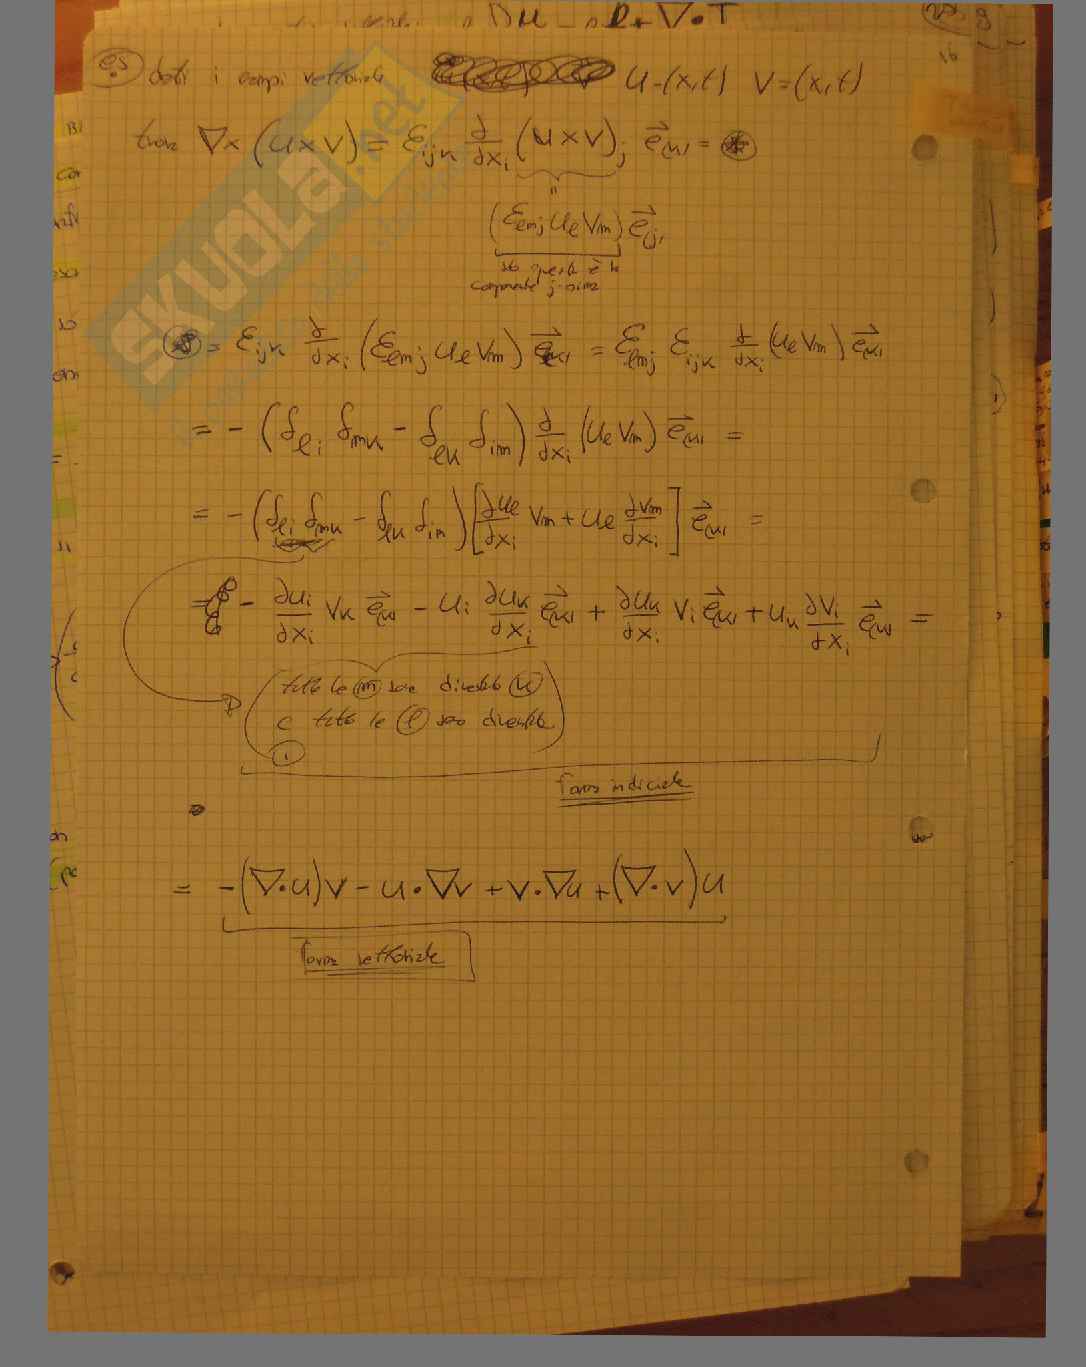 Du
+ ∇•T
es. dati i campi vettoriale u=(x,t) v=(x,t)
trova ∇x (u x v) = ε_ijk ∂/∂x_i (u x v)_j e⃗_(k) = ⊛
"
(ε_lmj u_l v_m) e⃗_(j)
questa è la
componente j-sima
⊛ = ε_ijk ∂/∂x_i (ε_lmj u_l v_m) e⃗_(k) = ε_lmj ε_ijk ∂/∂x_i (u_l v_m) e⃗_(k)
= - (δ_li δ_mk - δ_lk δ_im) ∂/∂x_i (u_l v_m) e⃗_(k) =
= - (δ_li δ_mk - δ_lk δ_im) [∂u_l/∂x_i v_m + u_l ∂v_m/∂x_i] e⃗_(k) =
= - ∂u_i/∂x_i v_k e⃗_(k) - u_i ∂u_k/∂x_i e⃗_(k) + ∂u_k/∂x_i v_i e⃗_(k) + u_k ∂v_i/∂x_i e⃗_(k) =
tutte le m sono diventate k
e tutte le l sono diventate
i
forma indiciale
= -(∇•u)v - u•∇v + v•∇u + (∇•v)u
forma vettoriale
SKUOLA.net